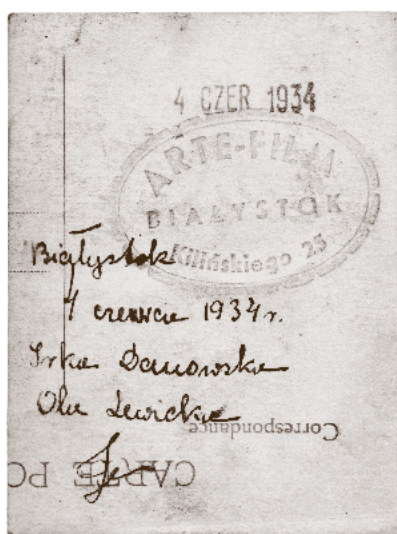 4 CZER 1934
ARTE-FILM
BIAŁYSTOK
Kilińskiego 25
Białystok
4 czerwca 1934 r.
Irka Danowska
Ola Lewicka
Correspondance
CARTE PO